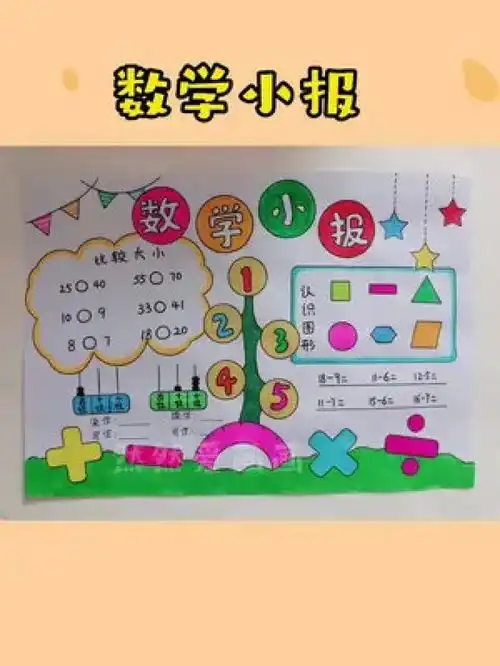 数学小报
数学小报
比较大小
25○40 55○70
10○9 33○41
8○7 18○20
1
2
3
4
5
认识图形
18-9= 11-6= 12-5=
11-7= 15-6= 16-7=
读作:
读作:
写作:
然然爱画画